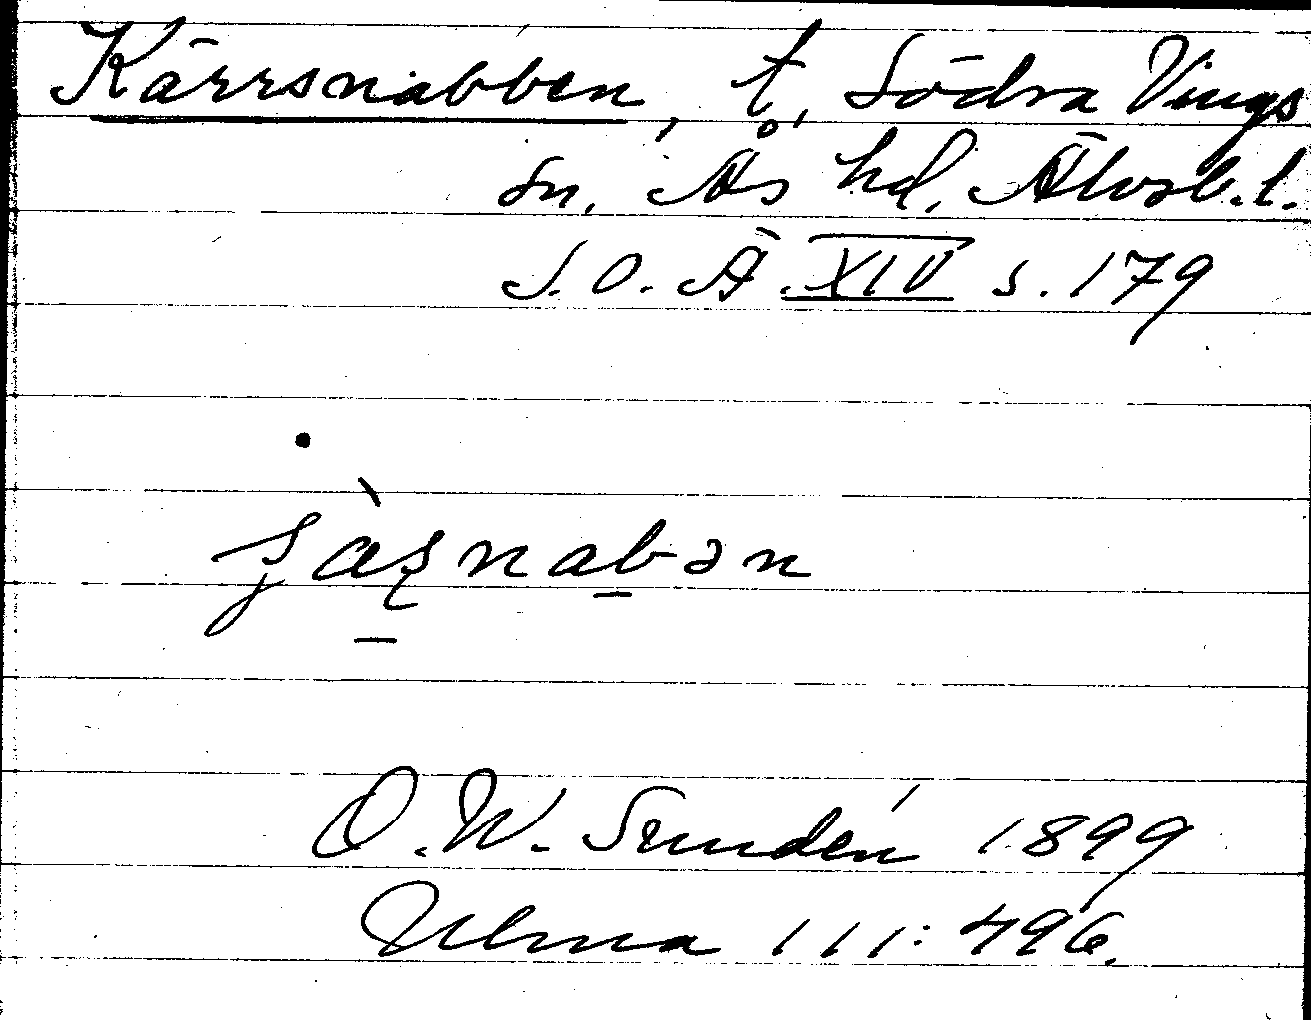 Kärrsnabben, t., Södra Vings
sn. Ås hd, Älvsb.l.
S.O.Ä. XIV s. 179
O.W. Sundén 1899
Ulma 111:496.